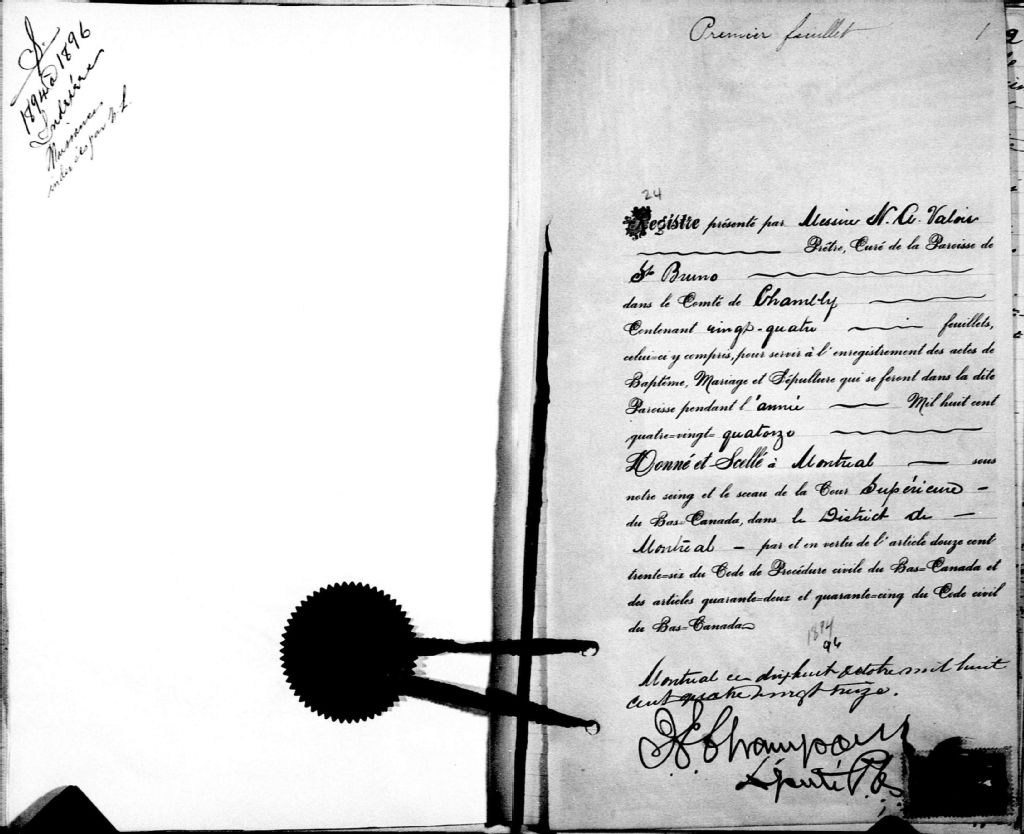 S.
1894 à 1896
Indexée
Naissances
indexées par
Premier feuillet 1
24
Registre présenté par Messire N. A. Valois
Prêtre, Curé de la Paroisse de
St Bruno
dans le Comté de Chambly
Contenant vingt-quatre feuillets,
celui=ci y compris, pour servir à l'enregistrement des actes de
Baptême, Mariage et Sépulture qui se feront dans la dite
Paroisse pendant l'année Mil huit cent
quatre=vingt= quatorze
Donné et Scellé à Montreal sous
notre seing et le sceau de la Cour Supérieure -
du Bas=Canada, dans le District de -
Montréal - par et en vertu de l'article douze cent
trente=six du Code de Procédure civile du Bas=Canada et
des articles quarante=deux et quarante=cinq du Code civil
du Bas=Canada
1894
94
Montreal ce dixhuit octobre mil huit
cent quatre vingt treize.
Député P.